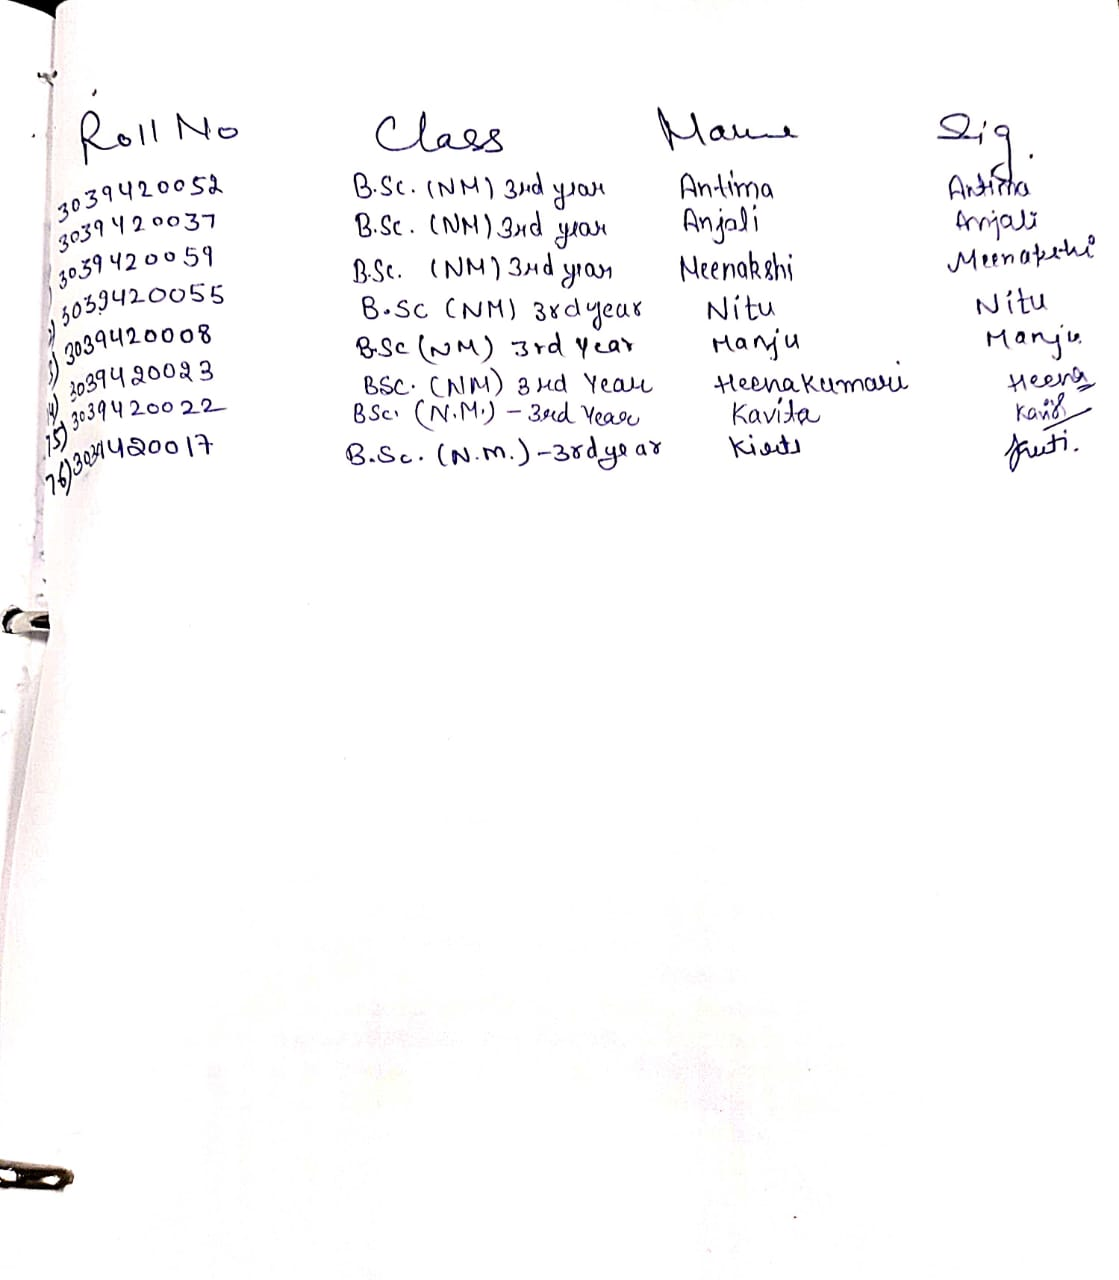 Roll No Class Name Sig.
3039420052 B.Sc. (NM) 3rd year Antima Antima
3039420037 B.Sc. (NM) 3rd year Anjali Anjali
3039420059 B.Sc. (NM) 3rd year Meenakshi Meenakshi
3039420055 B.Sc (NM) 3rd year Nitu Nitu
3039420008 B.Sc (NM) 3rd year Manju Manju
3039420023 BSC. (NM) 3rd Year Heena Kumari Heena
75) 3039420022 BSc. (N.M.) - 3rd Year Kavita
76) 3039420017 B.Sc. (N.M.) - 3rd year